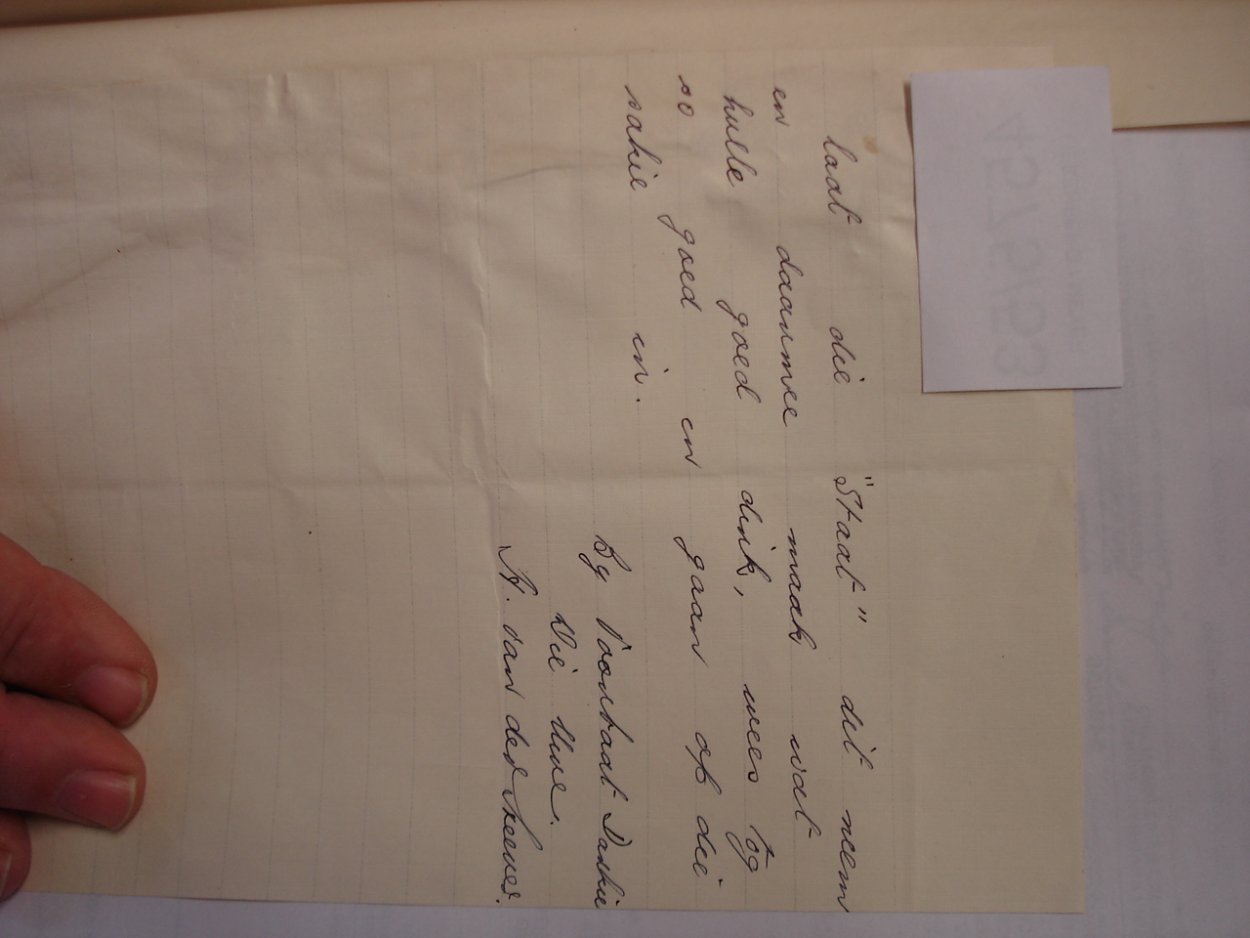 laat die "Staat" dit neem
en daarmee maak wat
hulle goed dink, wees tog
so goed en gaan op die
sakie in.
By Voorbaat Dankie
Die Uwe.
van der